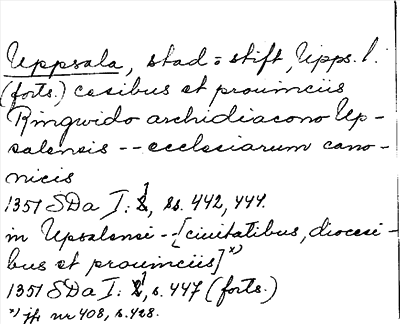 Uppsala, stad o stift, Upps. l.
(forts.) cesibus et prouinciis
Ringwido archidiacono Up-
salensis -- ecclesiarum cano-
nicis
1351 SDa I: 1, ss. 442, 444.
in Upsalensi -- [ciuitatibus, diocesi-
bus et prouinciis] x)
1351 SDa I: 1, s. 447 (forts.)
x) jfr nr 408, s. 428.